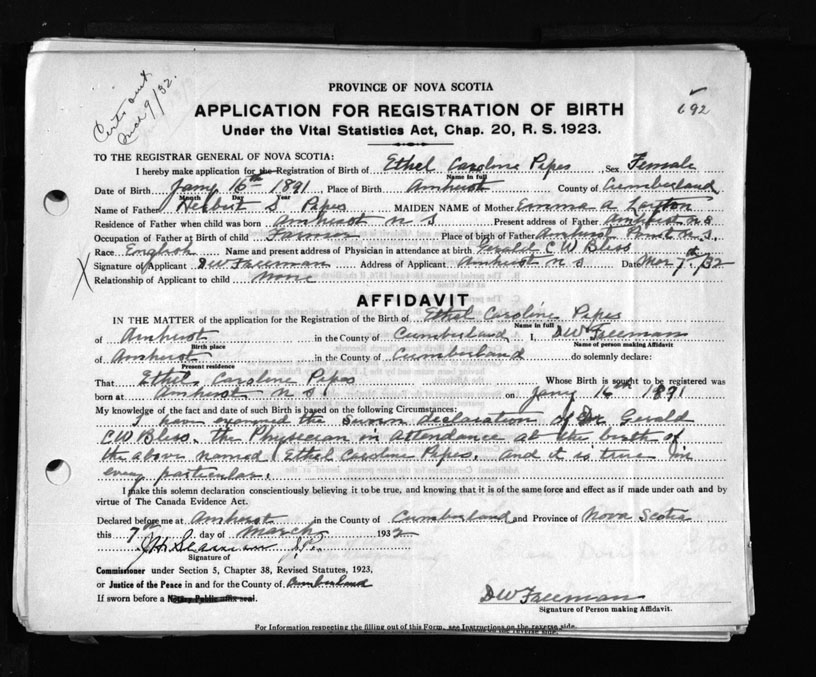 Certs sent
Mar 9/32.
PROVINCE OF NOVA SCOTIA
692
APPLICATION FOR REGISTRATION OF BIRTH
Under the Vital Statistics Act, Chap. 20, R. S. 1923.
TO THE REGISTRAR GENERAL OF NOVA SCOTIA:
I hereby make application for the Registration of Birth of Ethel Caroline Pipes Sex Female
Name in full
Date of Birth Jany 16th 1891 Place of Birth Amherst County of Cumberland
Month Day Year
Name of Father Herbert S Pipes MAIDEN NAME of Mother Emma A Layton
Residence of Father when child was born Amherst N S Present address of Father Amherst N.S.
Occupation of Father at Birth of child Farmer Place of birth of Father Amherst Point N.S.
Race English Name and present address of Physician in attendance at birth Gerald C W Bliss
X Signature of Applicant DW Freeman Address of Applicant Amherst N S Date Mar 7th/32
Relationship of Applicant to child None
AFFIDAVIT
IN THE MATTER of the application for the Registration of the Birth of Ethel Caroline Pipes
Name in full
of Amherst in the County of Cumberland I, DW Freeman
Birth place Name of person making Affidavit
of Amherst in the County of Cumberland do solemnly declare:
Present residence
That Ethel Caroline Pipes Whose Birth is sought to be registered was
born at Amherst N S on Jany 16th 1891
My knowledge of the fact and date of such Birth is based on the following Circumstances:
I have examined the sworn declaration of Dr. Gerald
C.W Bliss. the Physician in attendance at the birth of
the above named Ethel Caroline Pipes. and it is true in
every particular.
I make this solemn declaration conscientiously believing it to be true, and knowing that it is of the same force and effect as if made under oath and by
virtue of The Canada Evidence Act.
Declared before me at Amherst in the County of Cumberland and Province of Nova Scotia
this 7th day of March 1932
J.P.
Signature of
Commissioner under Section 5, Chapter 38, Revised Statutes, 1923,
or Justice of the Peace in and for the County of Cumberland
If sworn before a Notary Public affix seal.
DW Freeman
Signature of Person making Affidavit.
For Information respecting the filling out of this Form, see Instructions on the reverse side.